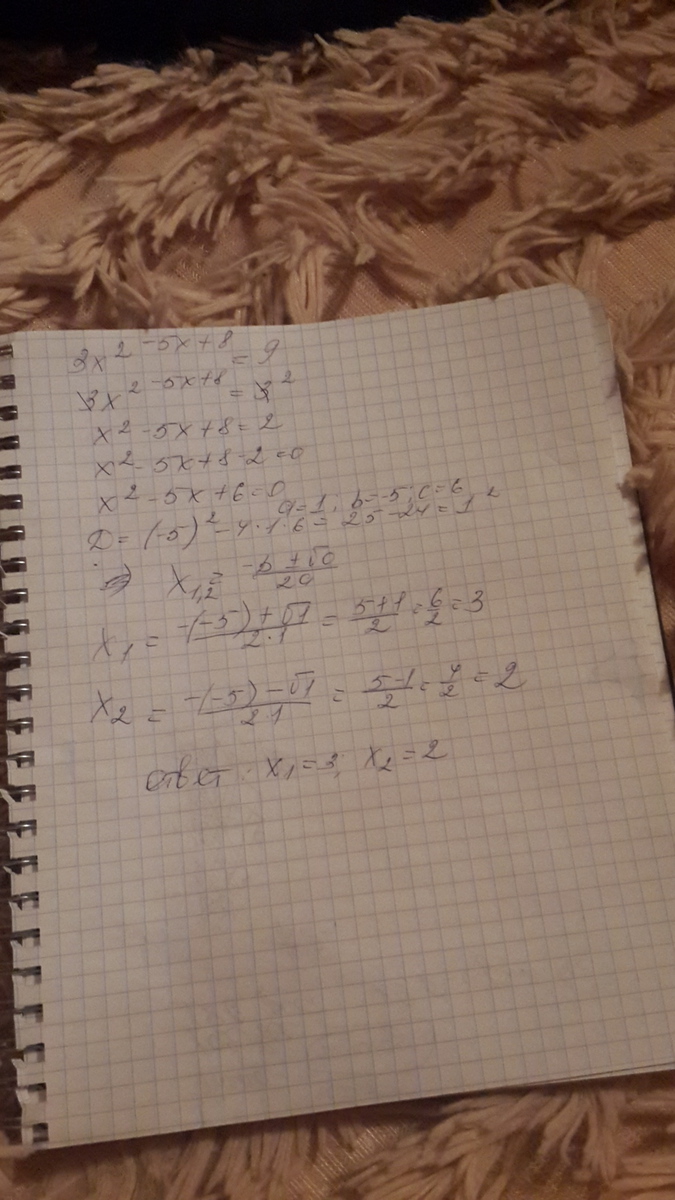 3x² ⁻⁵ˣ⁺⁸ = 9
3x² ⁻⁵ˣ⁺⁸ = 3²
x² - 5x + 8 = 2
x² - 5x + 8 - 2 = 0
x² - 5x + 6 = 0 a = 1; b = -5; c = 6
D = (-5)² - 4 · 1 · 6 = 25 - 24 = 1²
=> x₁,₂ = (-b ± √D)/2a
x₁ = (-(-5) + √1)/(2·1) = (5+1)/2 = 6/2 = 3
x₂ = (-(-5) - √1)/(2·1) = (5-1)/2 = 4/2 = 2
ответ: x₁ = 3, x₂ = 2